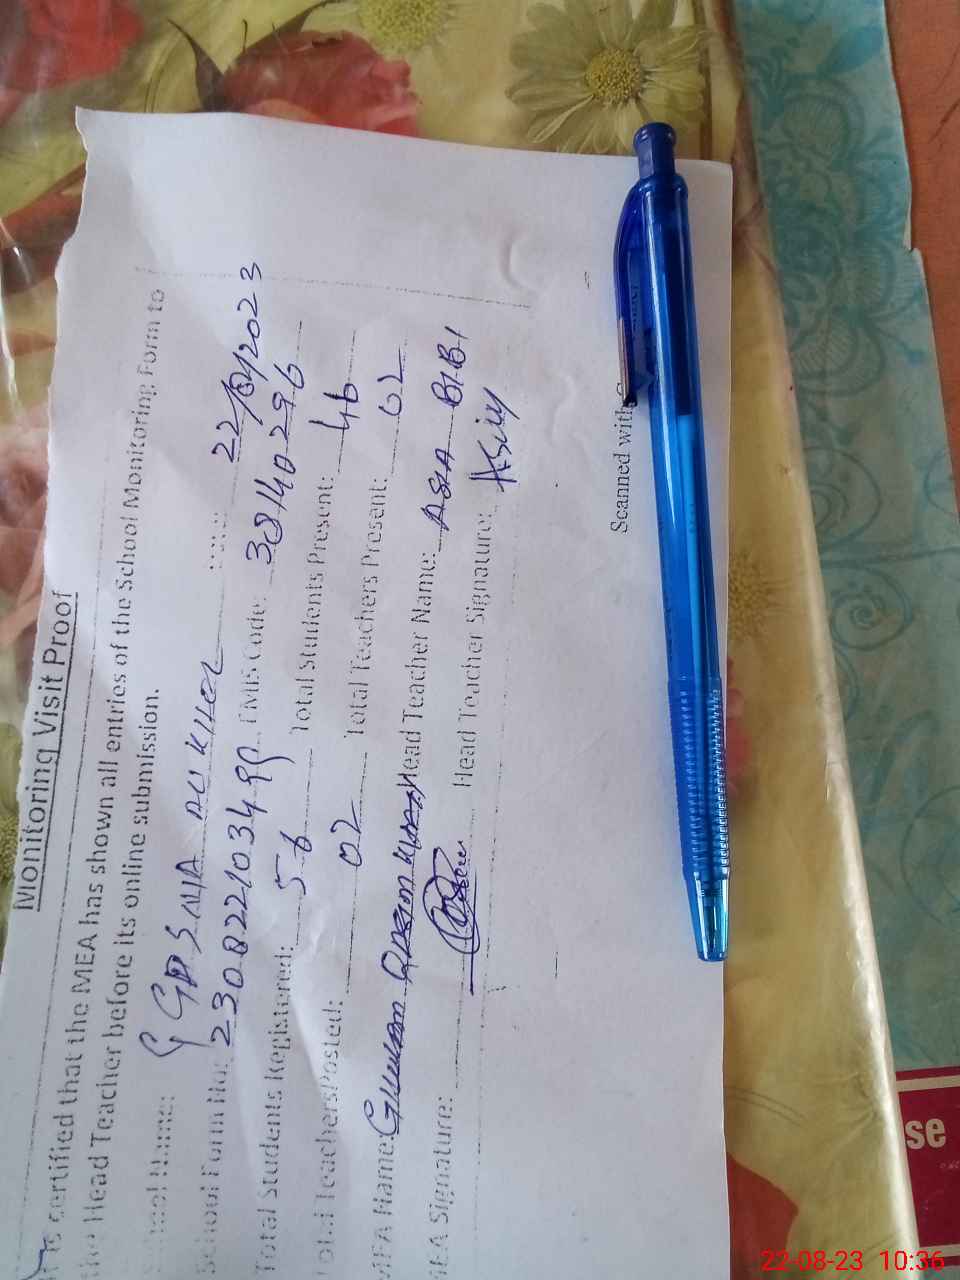 Monitoring Visit Proof
is certified that the MEA has shown all entries of the School Monitoring Form to
the Head Teacher before its online submission.
Name: GPS NIA ALI KHEL 22/8/2023
School Form No: 2308221034 EMIS Code: 38140296
Total Students Registered: 56 Total Students Present: 46
Total Teachers Posted: 02 Total Teachers Present: 02
MEA Name: Head Teacher Name: ASIA BIBI
MEA Signature: Head Teacher Signature:
Scanned with
se
22-08-23 10:36